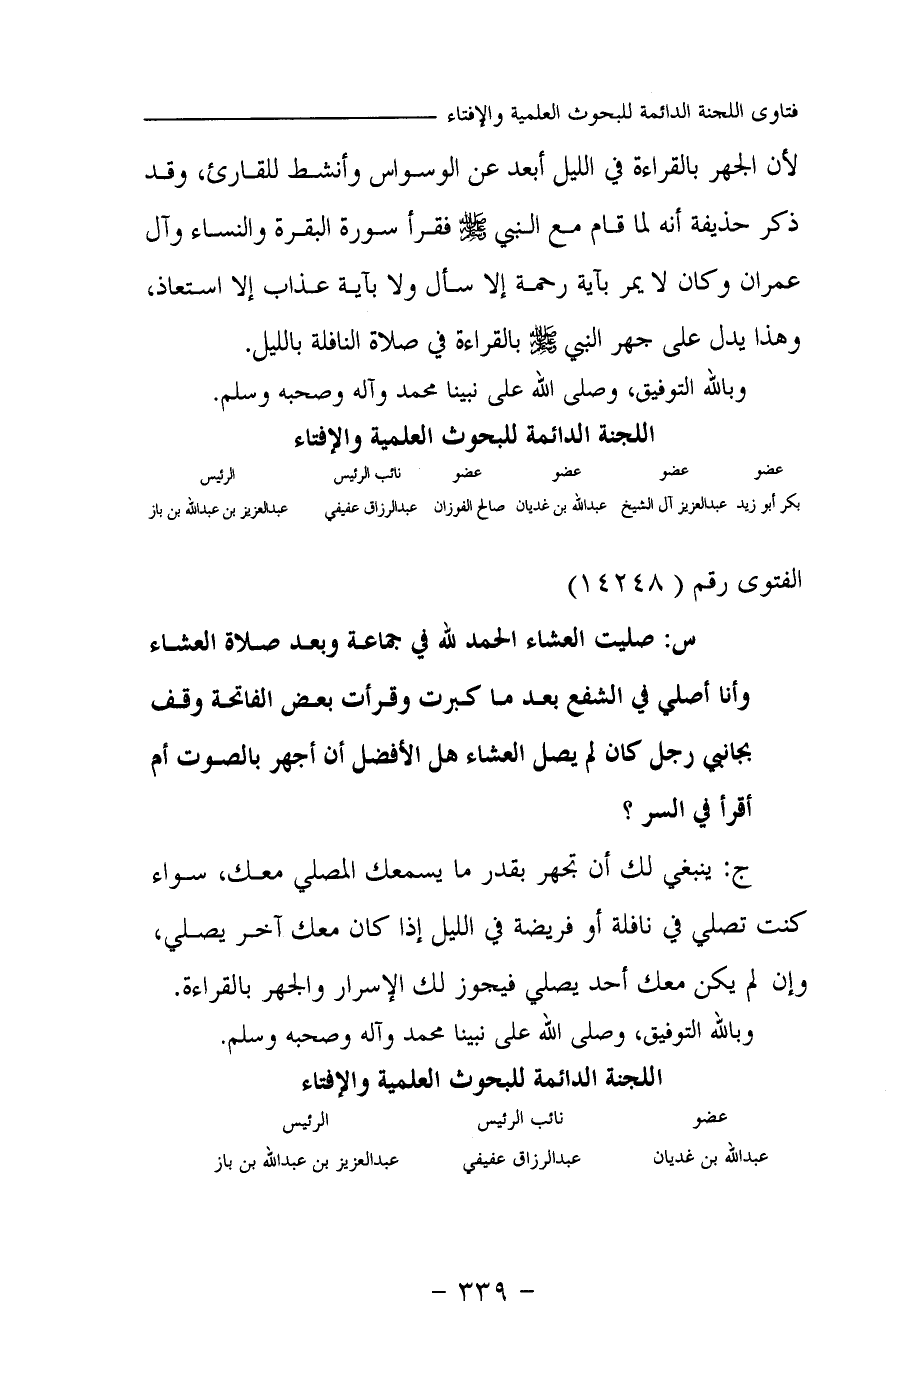 فتاوى اللجنة الدائمة للبحوث العلمية والإفتاء
لأن الجهر بالقراءة في الليل أبعد عن الوسواس وأنشط للقارئ، وقد
ذكر حذيفة أنه لما قام مع النبي ﷺ فقرأ سورة البقرة والنساء وآل
عمران وكان لا يمر بآية رحمة إلا سأل ولا بآية عذاب إلا استعاذ،
وهذا يدل على جهر النبي ﷺ بالقراءة في صلاة النافلة بالليل.
وبالله التوفيق، وصلى الله على نبينا محمد وآله وصحبه وسلم.
اللجنة الدائمة للبحوث العلمية والإفتاء
عضو عضو عضو عضو نائب الرئيس الرئيس
بكر أبو زيد عبدالعزيز آل الشيخ عبدالله بن غديان صالح الفوزان عبدالرزاق عفيفي عبدالعزيز بن عبدالله بن باز
الفتوى رقم ( ١٤٢٤٨)
س: صليت العشاء الحمد لله في جماعة وبعد صلاة العشاء
وأنا أصلي في الشفع بعد ما كبرت وقرأت بعض الفاتحة وقف
بجانبي رجل كان لم يصل العشاء هل الأفضل أن أجهر بالصوت أم
أقرأ في السر ؟
ج: ينبغي لك أن تجهر بقدر ما يسمعك المصلي معك، سواء
كنت تصلي في نافلة أو فريضة في الليل إذا كان معك آخر يصلي،
وإن لم يكن معك أحد يصلي فيجوز لك الإسرار والجهر بالقراءة.
وبالله التوفيق، وصلى الله على نبينا محمد وآله وصحبه وسلم.
اللجنة الدائمة للبحوث العلمية والإفتاء
عضو نائب الرئيس الرئيس
عبدالله بن غديان عبدالرزاق عفيفي عبدالعزيز بن عبدالله بن باز
- ٣٣٩ -